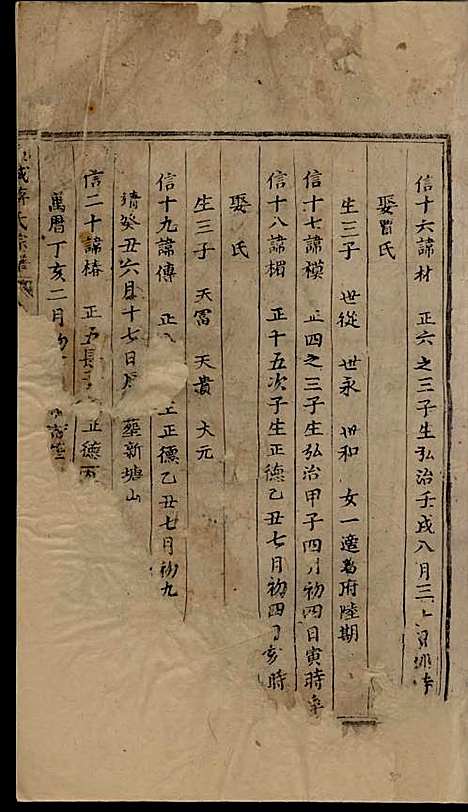 信十六諱材 正六之三子生弘治壬戌八月三十
娶曾氏
生三子 世從 世永 世和 女一適 府陸期
信十七諱模 正四之三子生弘治甲子四月初四日寅時卒
信十八諱楣 正十五次子生正德乙丑七月初四 亥時
娶 氏
生三子 天富 天貴 大元
信十九諱傳 正 正德乙丑七月初九
靖癸丑六月十七日 葬新塘山
信二十諱椿 正五長子 正德丙
萬曆丁亥二月初
氏宗譜